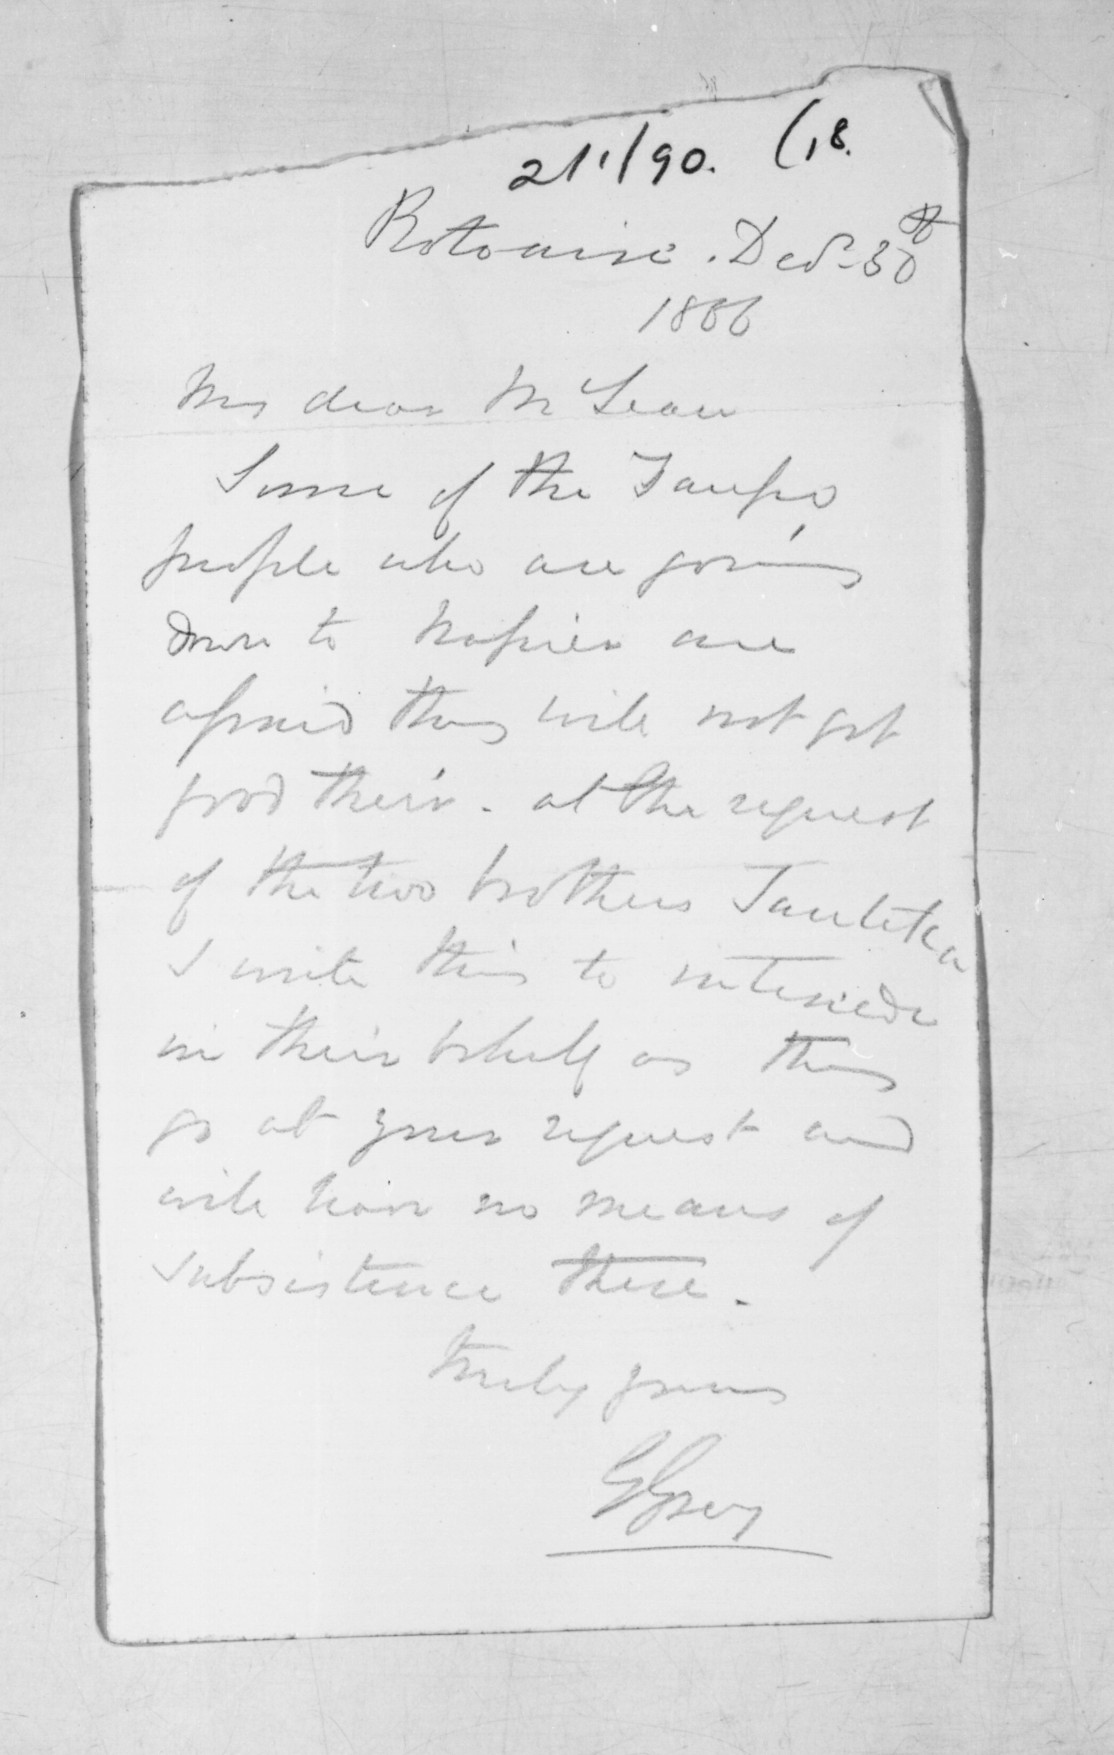 21/1/90. (18.
Rotoaira. Decr. 30th
1866
My dear McLean
Some of the Taupo
people who are going
down to Napier are
afraid they will not get
food there. at the request
of the two brothers
I write this to intercede
in their behalf as they
go at your request and
will have no means of
subsistence there.
truly yours
G Grey